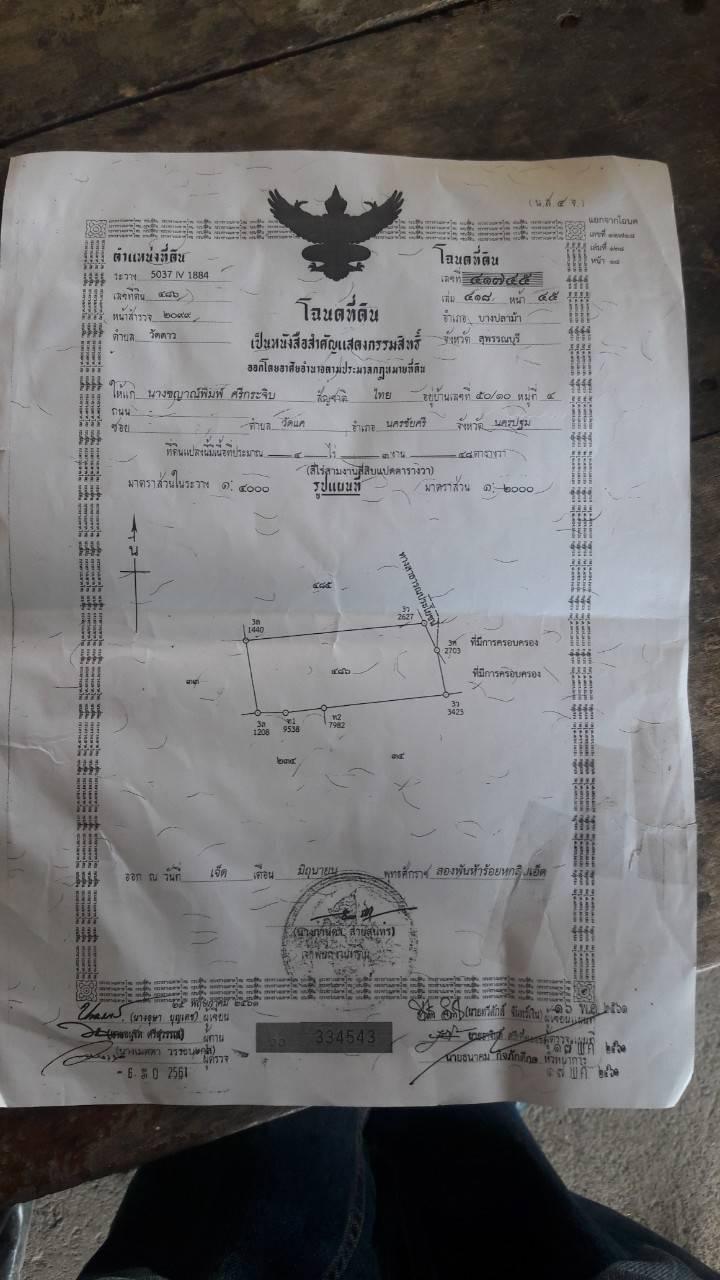 (น.ส. ๔ จ.)
แยกจากโฉนด
เลขที่ ๑๒๗๒๘
เล่มที่ ๑๒๘
หน้า ๒๘
ตำแหน่งที่ดิน
ระวาง 5037 IV 1884
เลขที่ดิน ๔๘๖
หน้าสำรวจ ๒๐๙๙
ตำบล วัดดาว
โฉนดที่ดิน
เลขที่ ๔๑๗๔๕
เล่ม ๔๑๘ หน้า ๔๕
อำเภอ บางปลาม้า
จังหวัด สุพรรณบุรี
โฉนดที่ดิน
เป็นหนังสือสำคัญแสดงกรรมสิทธิ์
ออกโดยอาศัยอำนาจตามประมวลกฎหมายที่ดิน
ให้แก่ นางชญาณ์พิมพ์ ศรีกระจิบ สัญชาติ ไทย อยู่บ้านเลขที่ ๕๐/๑๐ หมู่ที่ ๔
ถนน
ซอย ตำบล วัดแค อำเภอ นครชัยศรี จังหวัด นครปฐม
ที่ดินแปลงนี้มีเนื้อที่ประมาณ ๔ ไร่ ๓ งาน ๔๘ ตารางวา
(สี่ไร่สามงานสี่สิบแปดตารางวา)
มาตราส่วนในระวาง ๑: ๔๐๐๐ รูปแผนที่ มาตราส่วน ๑: ๒๐๐๐
น
๔๘๕
ทางสาธารณประโยชน์
3ว
2627
3ล
1440
3ศ
2703
ที่มีการครอบครอง
๔๘๖
ที่มีการครอบครอง
๓๓
3ล
1208
ท1
9538
ท2
7982
3ว
3423
๒๓๔
๓๕
ออก ณ วันที่ เจ็ด เดือน มิถุนายน พุทธศักราช สองพันห้าร้อยหกสิบเอ็ด
เจ้าพนักงานที่ดิน
๒๕ พฤษภาคม ๒๕๖๑
ผู้เขียน
ผู้ทาน
ผู้ตรวจ
- 6 มิ.ย. 2561
334543
๑๖ พ.ค. ๒๕๖๑
ผู้เขียนแผนที่
๑๗ พ.ค. ๒๕๖๑
หัวหน้าการ
๑๗ พ.ค. ๒๕๖๑